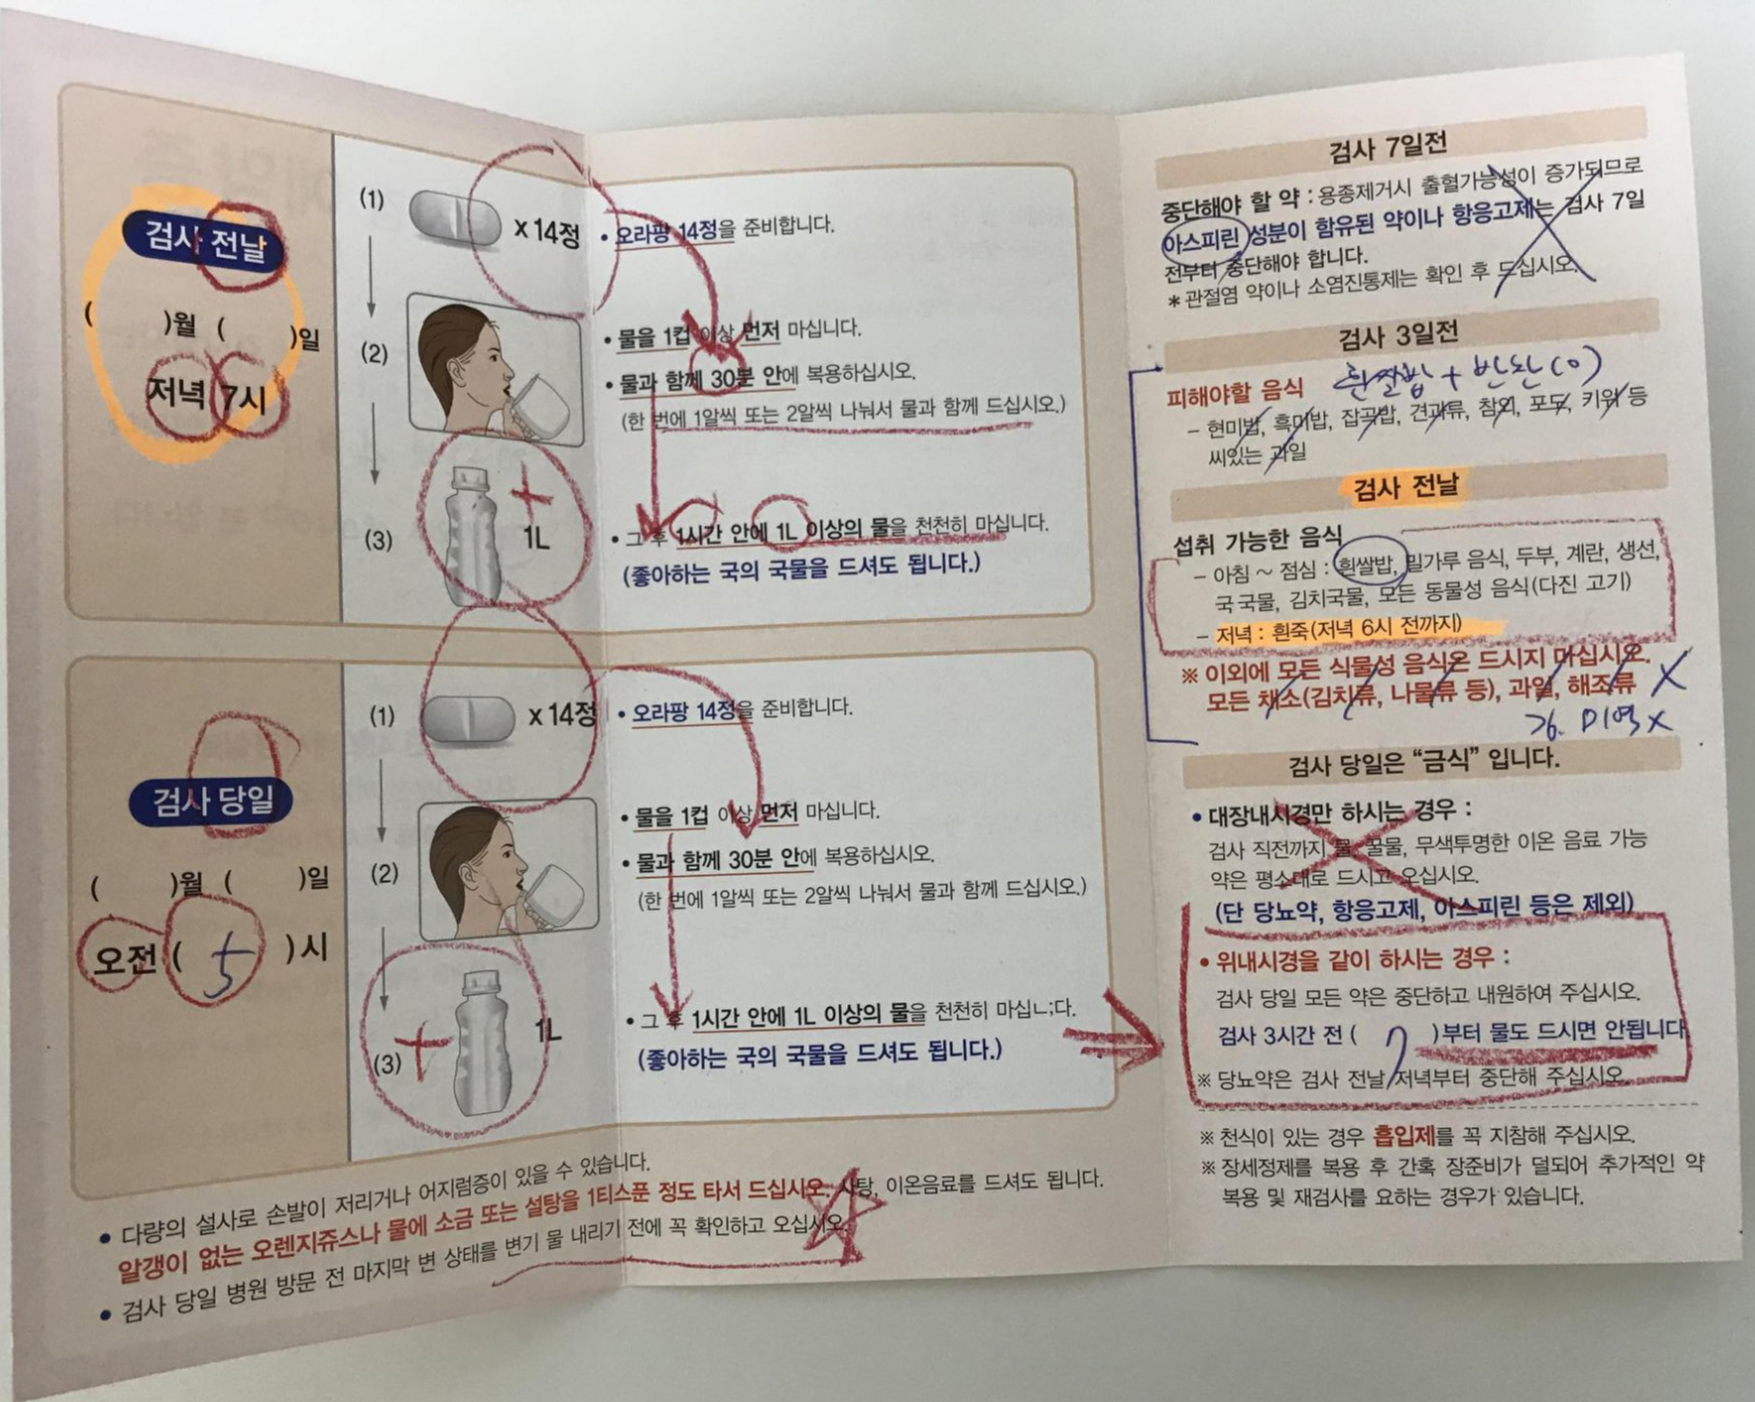 검사 전날
( )월 ( )일
저녁 7시
(1)
x 14정
• 오라팡 14정을 준비합니다.
(2)
• 물을 1컵 이상 먼저 마십니다.
• 물과 함께 30분 안에 복용하십시오.
(한 번에 1알씩 또는 2알씩 나눠서 물과 함께 드십시오.)
(3)
+
1L
• 그 후 1시간 안에 1L 이상의 물을 천천히 마십니다.
(좋아하는 국의 국물을 드셔도 됩니다.)
검사 당일
( )월 ( )일
오전 ( 5 )시
(1)
x 14정
• 오라팡 14정을 준비합니다.
(2)
• 물을 1컵 이상 먼저 마십니다.
• 물과 함께 30분 안에 복용하십시오.
(한 번에 1알씩 또는 2알씩 나눠서 물과 함께 드십시오.)
(3)
+
1L
• 그 후 1시간 안에 1L 이상의 물을 천천히 마십니다.
(좋아하는 국의 국물을 드셔도 됩니다.)
• 다량의 설사로 손발이 저리거나 어지럼증이 있을 수 있습니다.
알갱이 없는 오렌지쥬스나 물에 소금 또는 설탕을 1티스푼 정도 타서 드십시오. 사탕, 이온음료를 드셔도 됩니다.
• 검사 당일 병원 방문 전 마지막 변 상태를 변기 물 내리기 전에 꼭 확인하고 오십시오.
검사 7일전
중단해야 할 약 : 용종제거시 출혈가능성이 증가되므로
아스피린 성분이 함유된 약이나 항응고제는 검사 7일
전부터 중단해야 합니다.
* 관절염 약이나 소염진통제는 확인 후 드십시오.
검사 3일전
흰쌀밥 + 반찬(O)
피해야할 음식
– 현미밥, 흑미밥, 잡곡밥, 견과류, 참외, 포도, 키위 등
씨있는 과일
검사 전날
섭취 가능한 음식
– 아침 ~ 점심 : 흰쌀밥, 밀가루 음식, 두부, 계란, 생선,
국 국물, 김치국물, 모든 동물성 음식(다진 고기)
– 저녁 : 흰죽(저녁 6시 전까지)
※ 이외에 모든 식물성 음식은 드시지 마십시오.
모든 채소(김치류, 나물류 등), 과일, 해조류 X
김. 미역 X
검사 당일은 “금식” 입니다.
• 대장내시경만 하시는 경우 :
검사 직전까지 물, 꿀물, 무색투명한 이온 음료 가능
약은 평소대로 드시고 오십시오.
(단 당뇨약, 항응고제, 아스피린 등은 제외)
• 위내시경을 같이 하시는 경우 :
검사 당일 모든 약은 중단하고 내원하여 주십시오.
검사 3시간 전 ( 7 )부터 물도 드시면 안됩니다
※ 당뇨약은 검사 전날 저녁부터 중단해 주십시오.
※ 천식이 있는 경우 흡입제를 꼭 지참해 주십시오.
※ 장세정제를 복용 후 간혹 장준비가 덜되어 추가적인 약
복용 및 재검사를 요하는 경우가 있습니다.